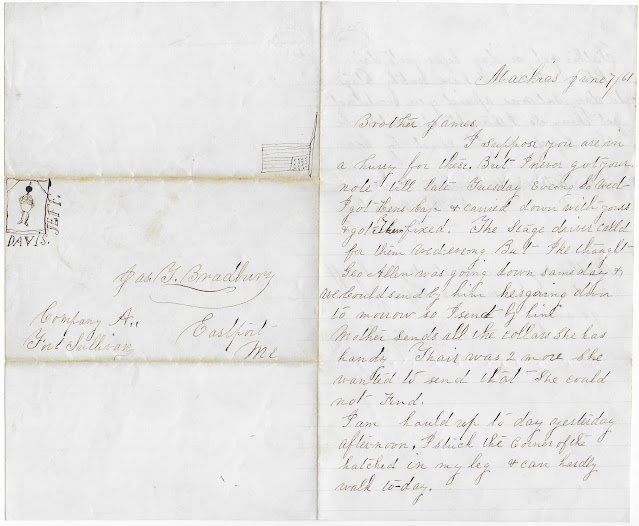 JEFF.
DAVIS.
Jas. T. Bradbury
Company A.,
Fort Sullivan
Eastport
Me
Machias June 7/61
Brother James.
I suppose you are in
a hurry for these. But I never got your
note till late Tuesday Evening so Wed-
I got Hens Cap & carried down with yours
& got Them fixed. The Stage driver called
for them Wed-evening But I the thought
Geo Allen was going down same day &
we Could send by him hes going down
to morrow so I send by him
Mother sends all the collars she has
handy. Thair was 2 more she
wanted to send that She could
not find.
I am hauld up to day yesterday
after-noon, I stuck the Corner of the
hatched in my leg & can hardly
walk to-day.